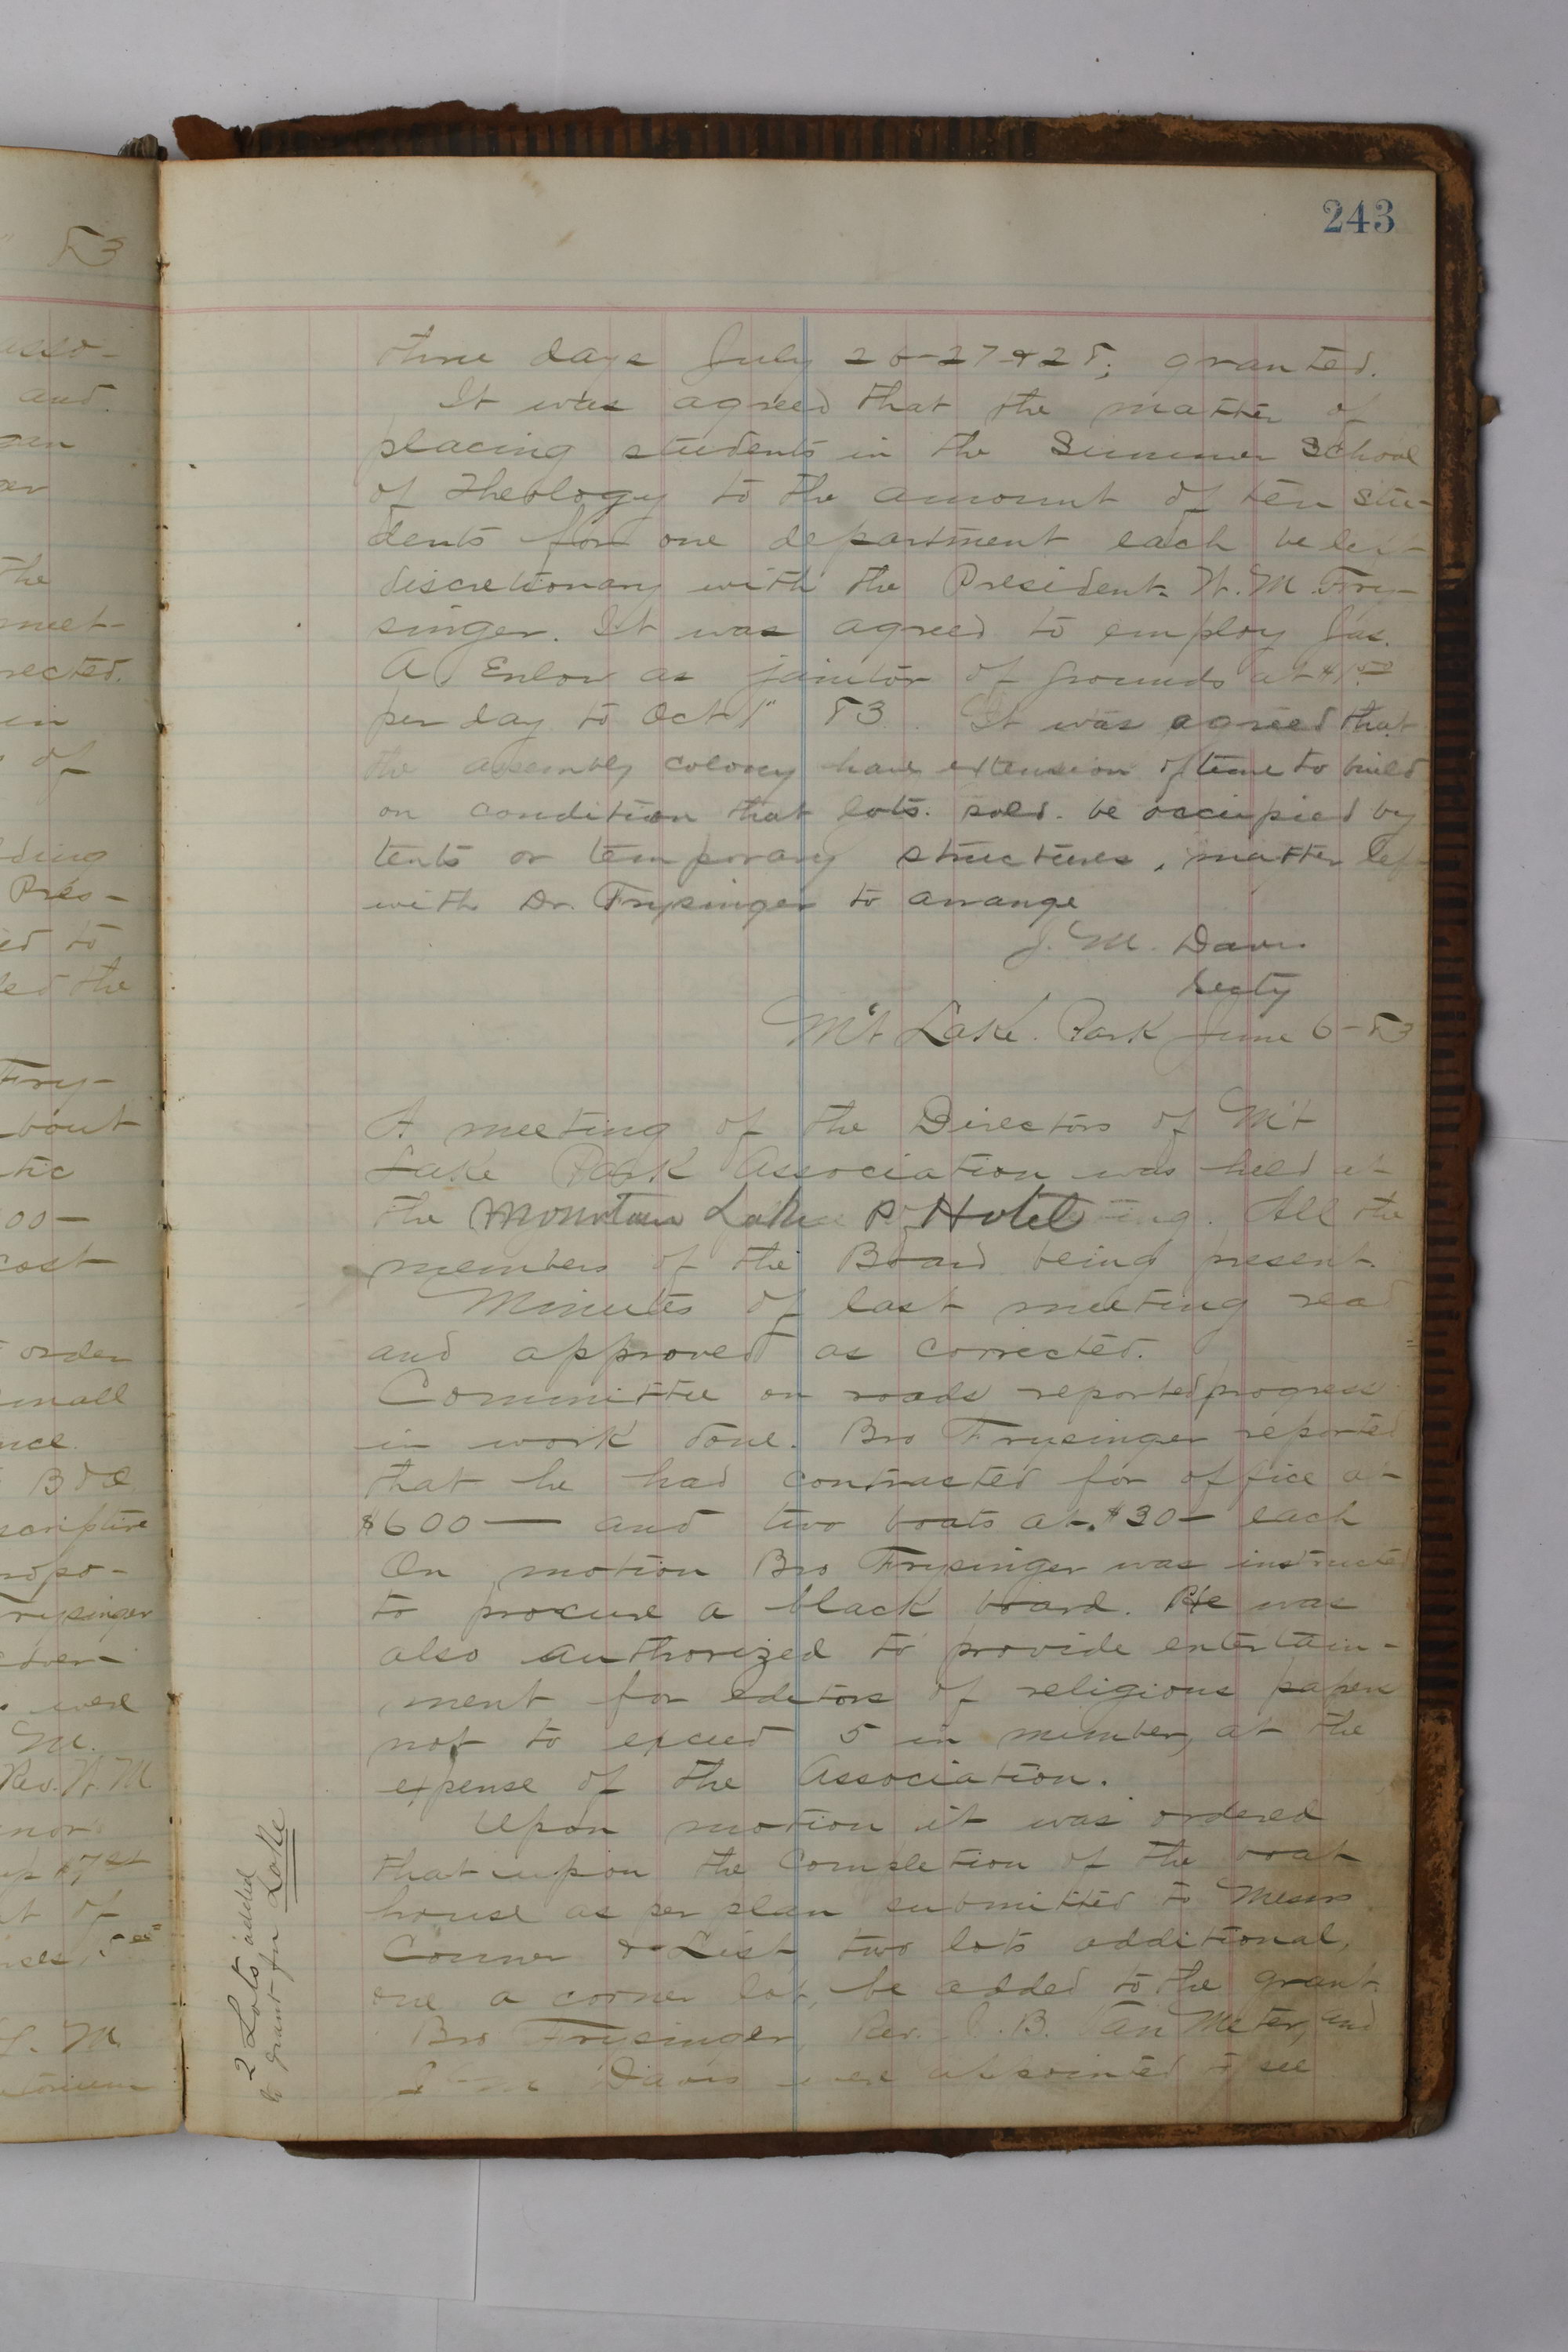 243
three days July 26-27 & 28; granted.
It was agreed that the matter of
placing students in the Summer School
of Theology to the amount of ten stu-
dents for one department each be left
discretionary with the President. W. M. Fry-
singer. It was agreed to employ Jas.
A. Enlow as janitor of grounds at $1.50
per day to Oct 1" 83. It was agreed that
the assembly colony have extension of time to build
on condition that lots. sold. be occupied by
tents or temporary structures, matter left
with Dr. Frysinger to arrange
J. M. Davis
Secty
M't Lake. Park June 6 - 83
A meeting of the Directors of M't
Lake Park Association was held at
the Mountain Lake P. Hotel. All the
members of the Board being present.
Minutes of last meeting read
and approved as corrected.
Committee on roads reported progress
in work done. Bro Frysinger reported
that he had contracted for office at
$600— and two boats at $30— each
On motion Bro Frysinger was instructed
to procure a black board. He was
also authorized to provide entertain-
ment for editors of religious papers
not to exceed 5 in number, at the
expense of the Association.
Upon motion it was ordered
that upon the completion of the boat
house as per plan submitted to Messrs
Conner & List two lots additional,
one a corner lot, be added to the grant.
Bro Frysinger, Rev. J. B. Van Meter, and
J. M. Davis were appointed to see
2 Lots added
to grant for Lake
83
and
the
meet-
rected.
in
of
Pres-
ed to
ed the
Fry-
bout
tic
00—
cost
order
small
scriptive
ropo-
rysinger
were
M.
Rev. W. M
of